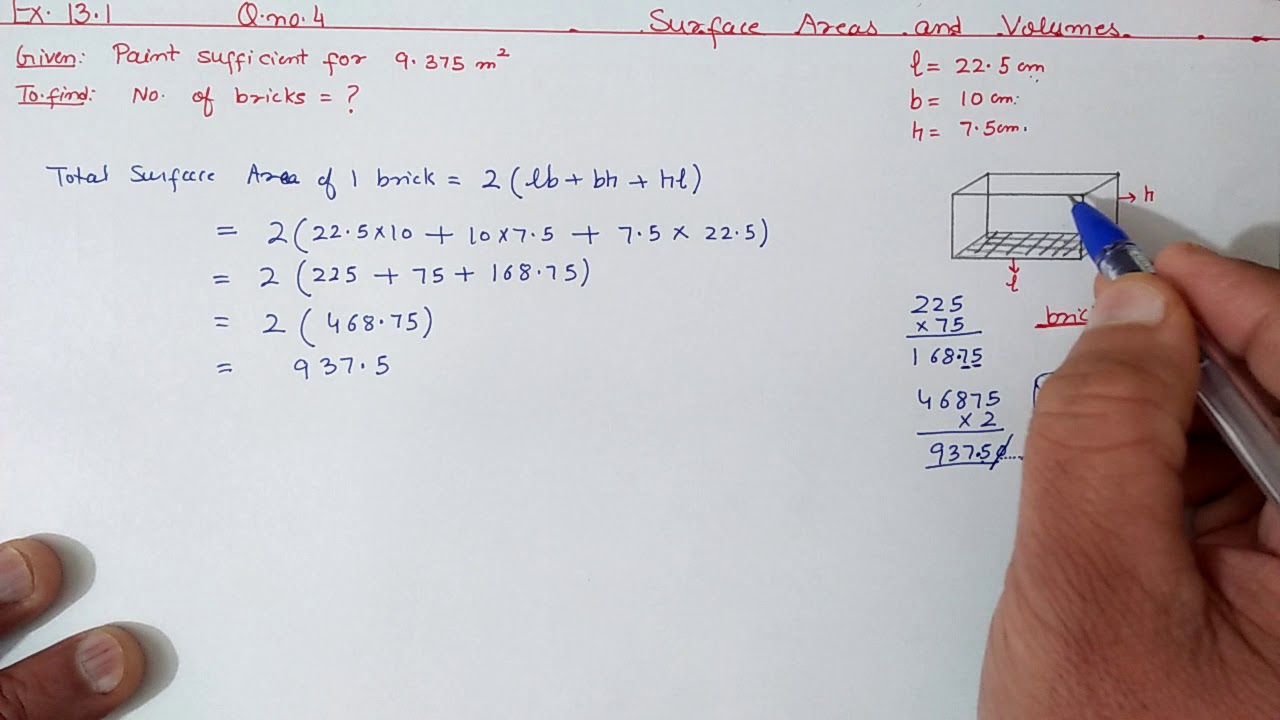 Ex. 13.1 Q.no.4 Surface Areas and Volumes.
Given: Paint sufficient for 9.375 m²
To find: No. of bricks = ?
l = 22.5 cm
b = 10 cm.
h = 7.5cm.
Total Surface Area of 1 brick = 2(lb + bh + hl)
= 2(22.5×10 + 10×7.5 + 7.5 × 22.5)
= 2(225 + 75 + 168.75)
= 2(468.75)
= 937.5
h
l
225
×75
168.75
46875
×2
937.50